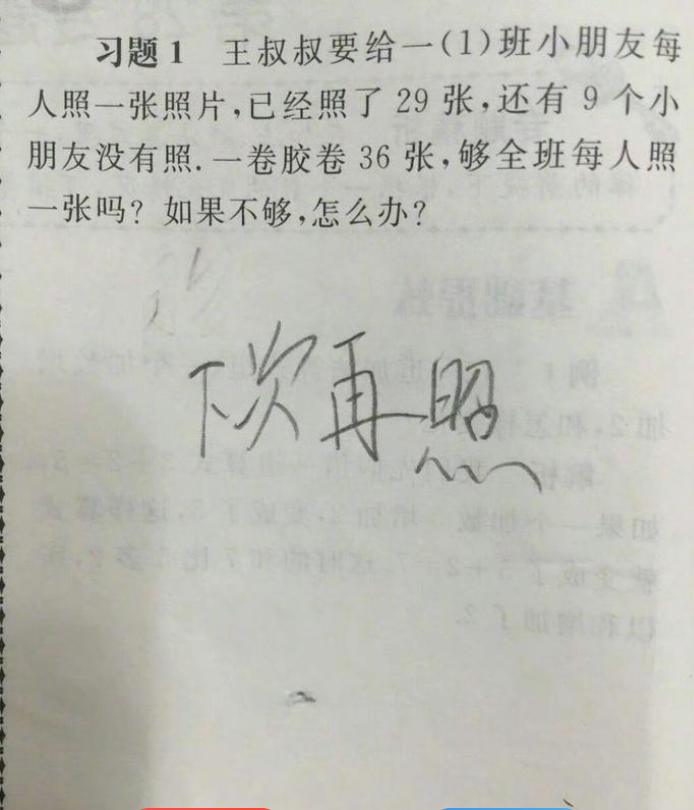 习题1 王叔叔要给一(1)班小朋友每
人照一张照片,已经照了 29 张,还有 9 个小
朋友没有照.一卷胶卷 36 张,够全班每人照
一张吗? 如果不够,怎么办?
下次再照